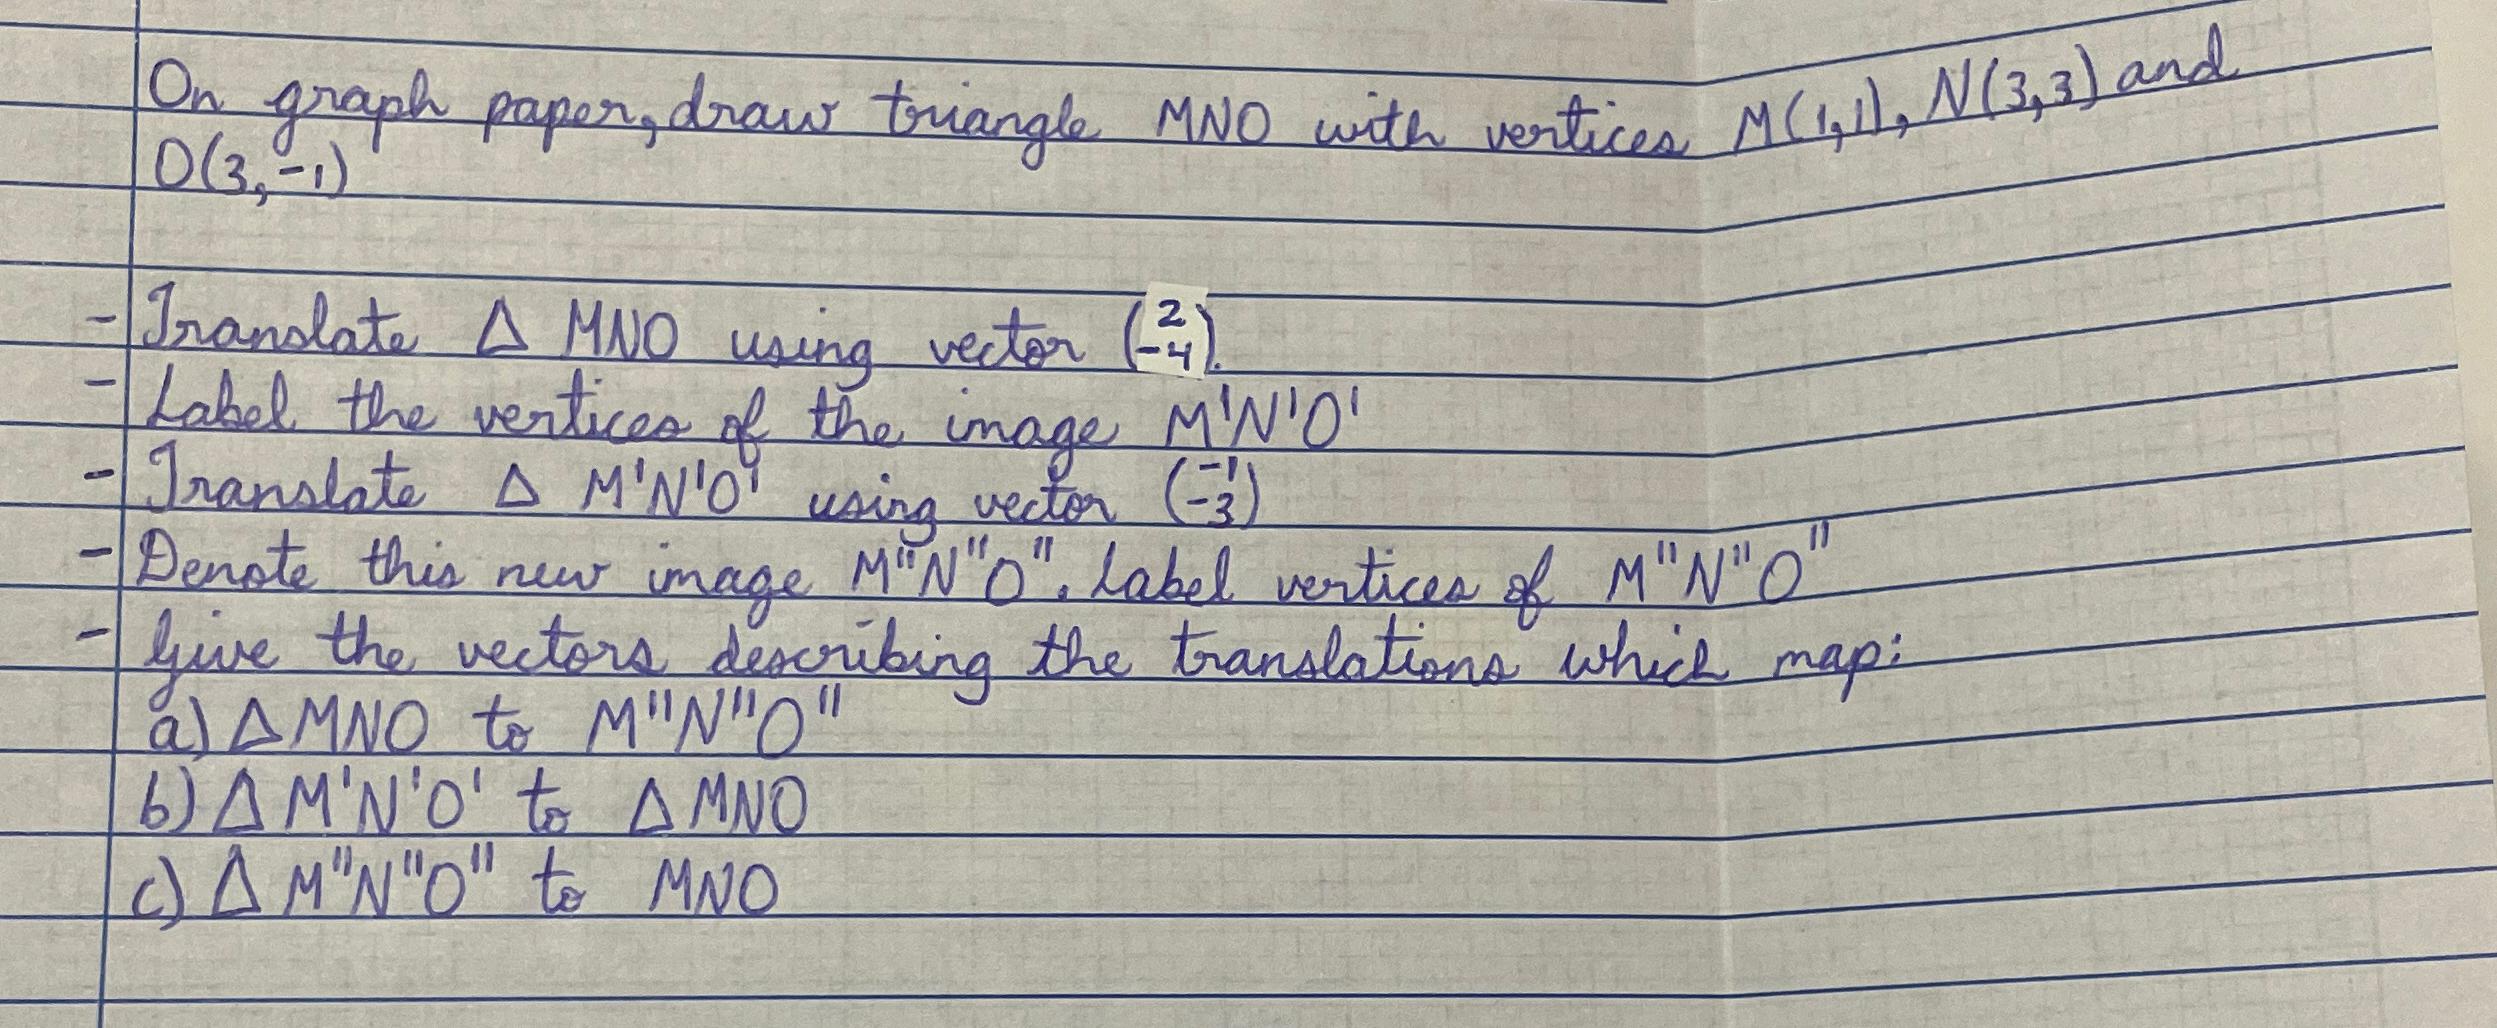 On graph paper, draw triangle MNO with vertices M(1,1), N(3,3) and
O(3,-1)
- Translate Δ MNO using vector (2 -4).
- Label the vertices of the image M'N'O'
- Translate Δ M'N'O' using vector (-1 -3)
- Denote this new image M"N"O". Label vertices of M"N"O"
- Give the vectors describing the translations which map:
a) Δ MNO to M"N"O"
b) Δ M'N'O' to Δ MNO
c) Δ M"N"O" to MNO